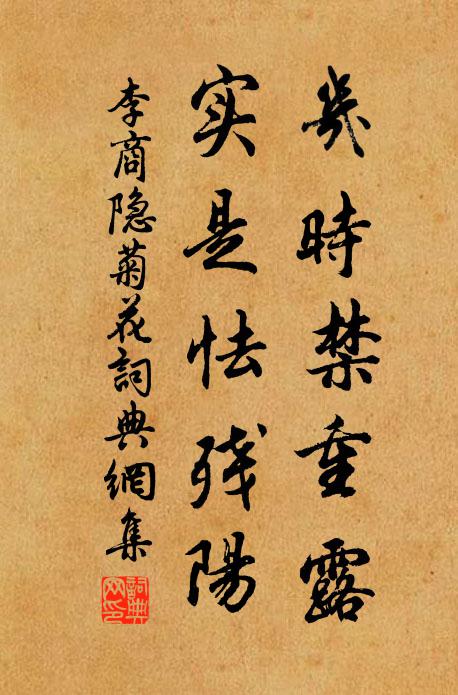 幾時禁重露
实是怯残陽
李商隐菊花詞典網集
詞典網印